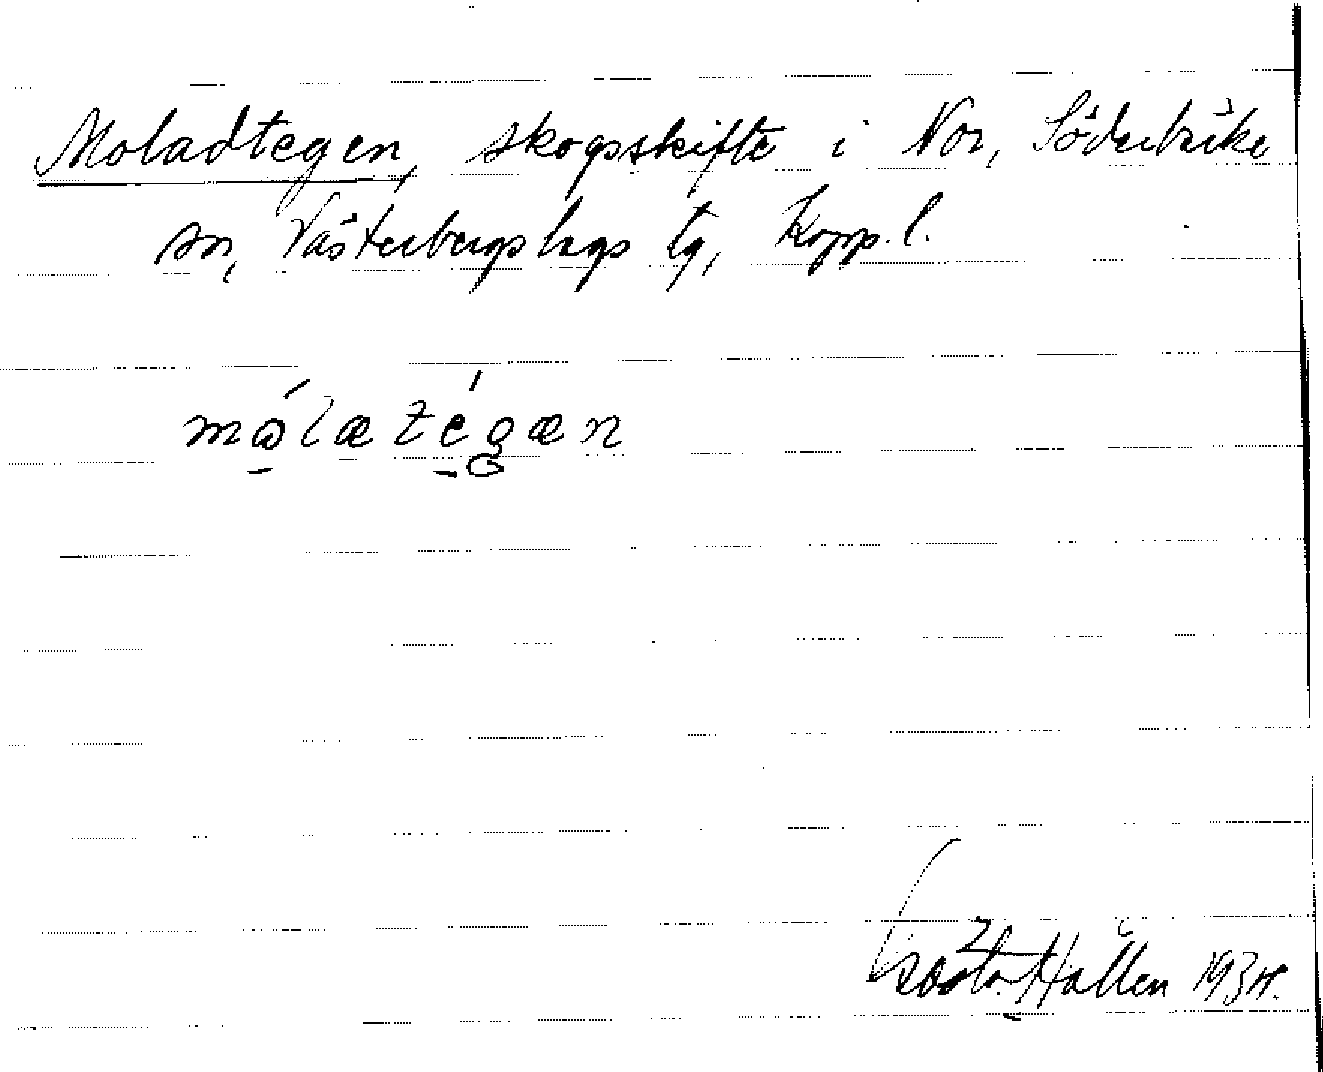 Moladtegen, skogsskifte i Nor, Söderbärke
sn, Västerbergslags tg, Kopp. l.
målætégæn
Gösta Hallén 1934.